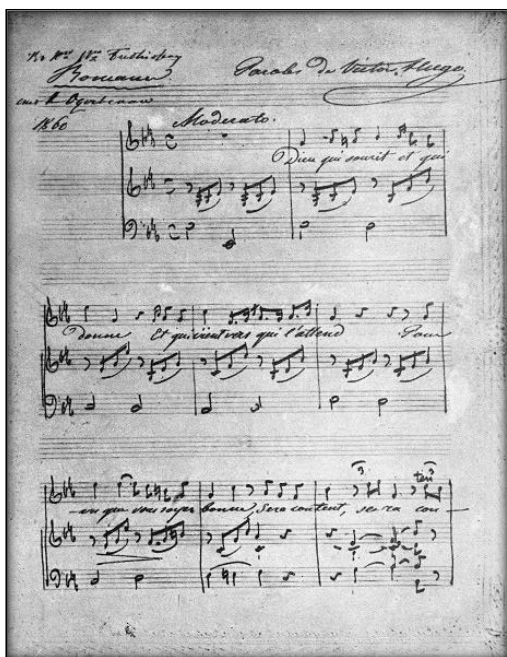 Romance
Paroles de Victor Hugo.
1860
Moderato.
Dieu qui sourit et qui
donne Et qui vient vers qui l'attend Pour
-vu que vous soyez bonne, Sera content, sera con-
3
ten